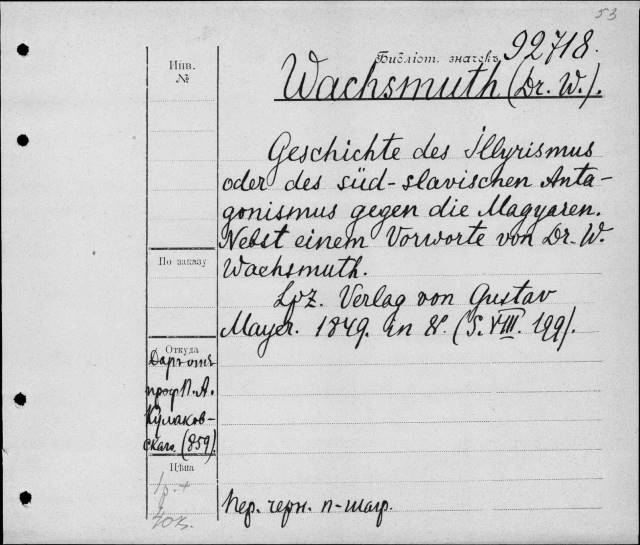 53
Инв.
№
Библіот. значекъ 92718.
Wachsmuth (Dr. W.).
Geschichte des Illyrismus
oder des süd-slavischen Anta-
gonismus gegen die Magyaren.
Nebst einem Vorworte von Dr. W.
Wachsmuth.
По заказу
Lpz. Verlag von Gustav
Mayer. 1849. in 8°. (S. VIII. 199).
Откуда
Даръ отъ
проф. П. А.
Кулаков-
скаго. (859).
Цѣна
1р. +
40к.
Пер. черн. п-шагр.